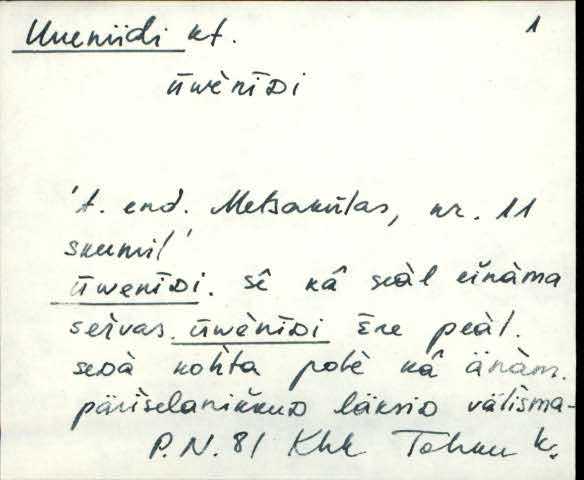 Uueniidi kt. 1
ūwènīᴅi
't. end. Metsakülas, nr. 11
skemil'
ūwenīᴅi. sê kâ seàl eìnàma
seìvas. ūwènīᴅi ǟre peàl.
seᴅà kohta polè kâ änàm.
pärìselanikkuᴅ läksiᴅ välìsma-
P.N. 81 Khk Tahku k.